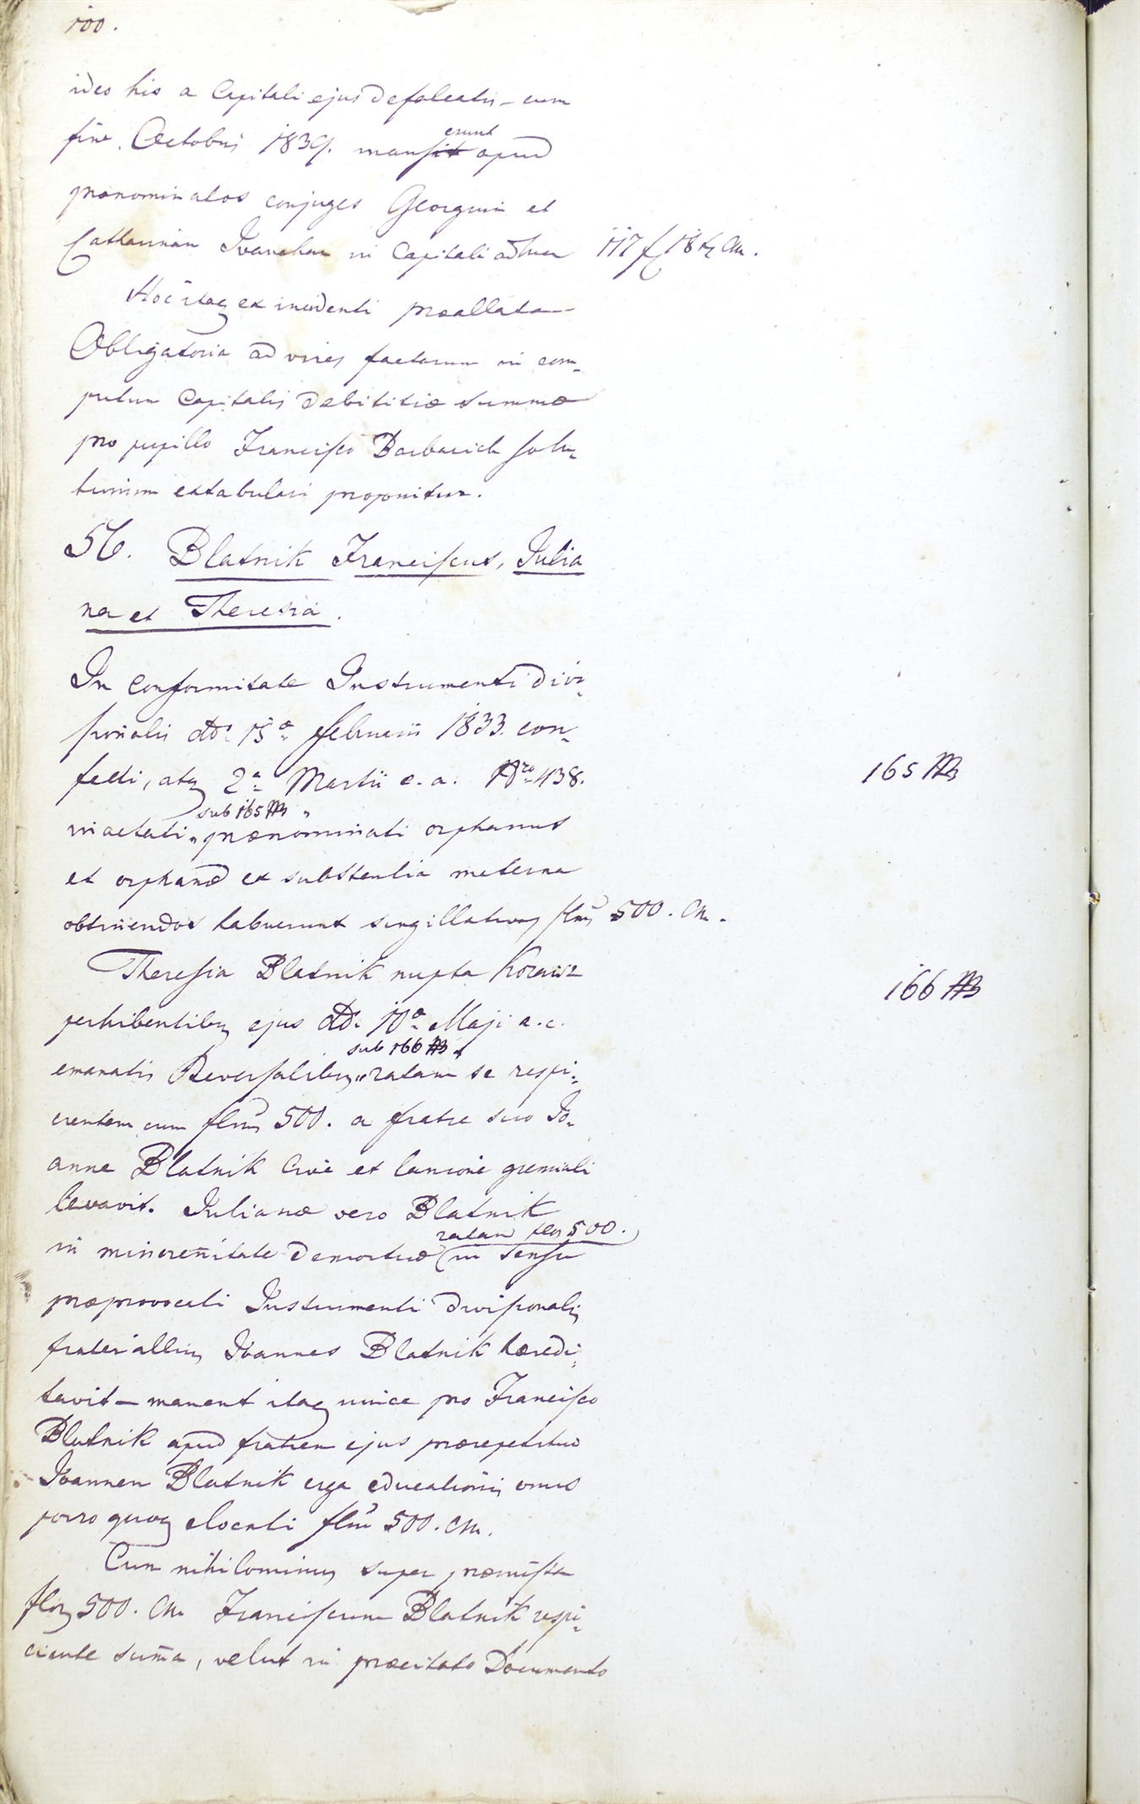 100.
ideo his a Capitali ejus defalcatis – cum
fine Octobris 1839. mansit erunt apud
prænominatos conjuges Georgium et
Catharinam Ivanchan in Capitali adhuc 117 f 18 x CM.
Hoc itaq ex incidenti præallata
Obligatoria ad vires factarum in com-
putum Capitalis debititiæ summæ
pro pupillo Francisco Barbarich solu-
tionum extabulari proponitur.
56. Blatnik Franciscus, Julia
na et Theresia.
In conformitate Instrumenti divi-
sionalis ddo 15a februarii 1833. con-
fecti, atq 2a Martii e. a. Nro 438.
165
sub 165
inactati prænominati orphanus
et orphanæ ex substantia materna
obtinendos habuerunt singillatim flnos 500. CM.
Theresia Blatnik nupta
166
perhibentibus ejus ddo 10a Maji a. c.
sub 166
emanatis Reversalibus ratam se respi-
cientem cum flnis 500. a fratre suo Jo-
anne Blatnik Cive et lanione gremiali
levavit. Julianæ vero Blatnik
ratam flor 500.
in minorenitate demortuæ in sensu
præprovocati Instrumenti divisionalis
frater illius Joannes Blatnik hæredi-
tavit – manent itaq unice pro Francisco
Blatnik apud fratrem ejus prærepetitum
Joannem Blatnik erga educationis onus
porro quoq elocati flni 500. CM.
Cum nihilominus super præmissa
flor 500. CM Franciscum Blatnik respi-
ciente suma, velut in præcitato Documento